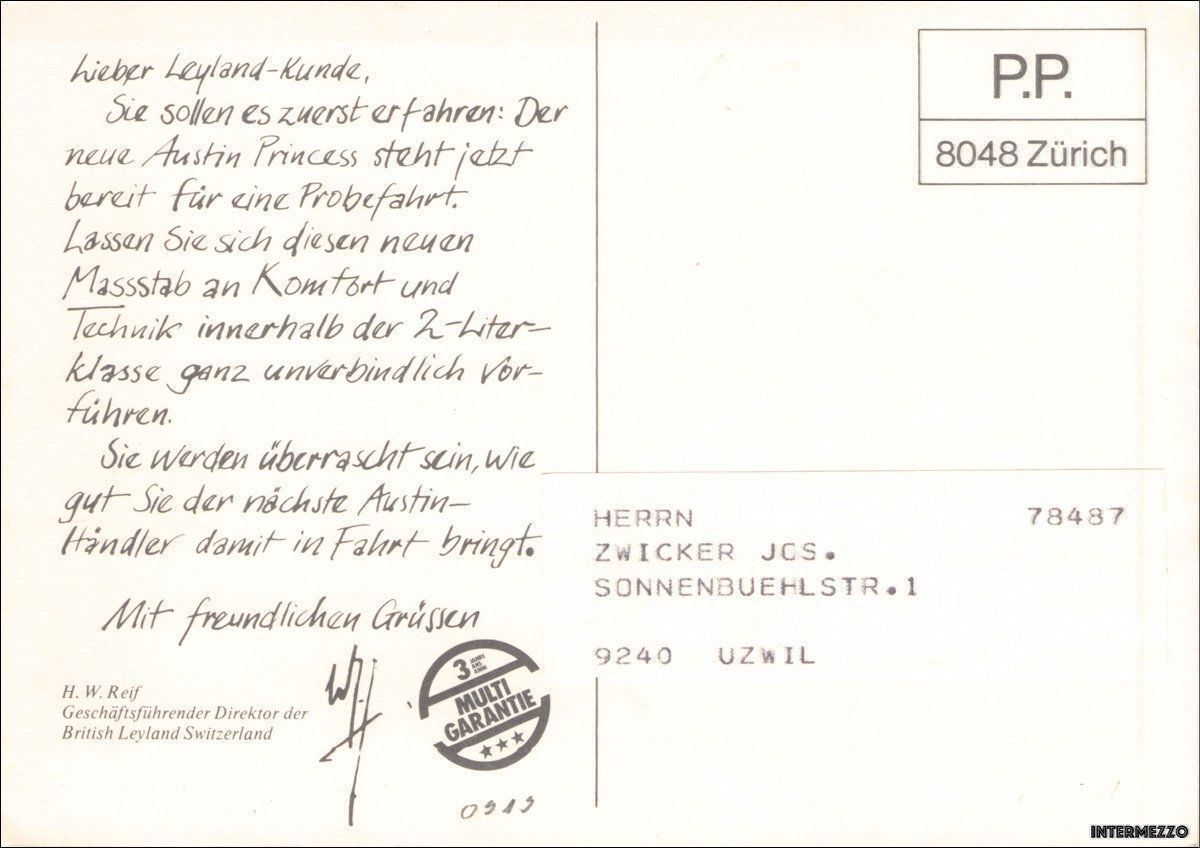 Lieber Leyland-Kunde,
Sie sollen es zuerst erfahren: Der
neue Austin Princess steht jetzt
bereit für eine Probefahrt.
Lassen Sie sich diesen neuen
Massstab an Komfort und
Technik innerhalb der 2-Liter-
klasse ganz unverbindlich vor-
führen.
Sie werden überrascht sein, wie
gut Sie der nächste Austin-
Händler damit in Fahrt bringt.
Mit freundlichen Grüssen
H. W. Reif
Geschäftsführender Direktor der
British Leyland Switzerland
3 JAHRE
ANS
ANNI
MULTI
GARANTIE
P.P.
8048 Zürich
HERRN 78487
ZWICKER JOS.
SONNENBUEHLSTR.1
9240 UZWIL
INTERMEZZO